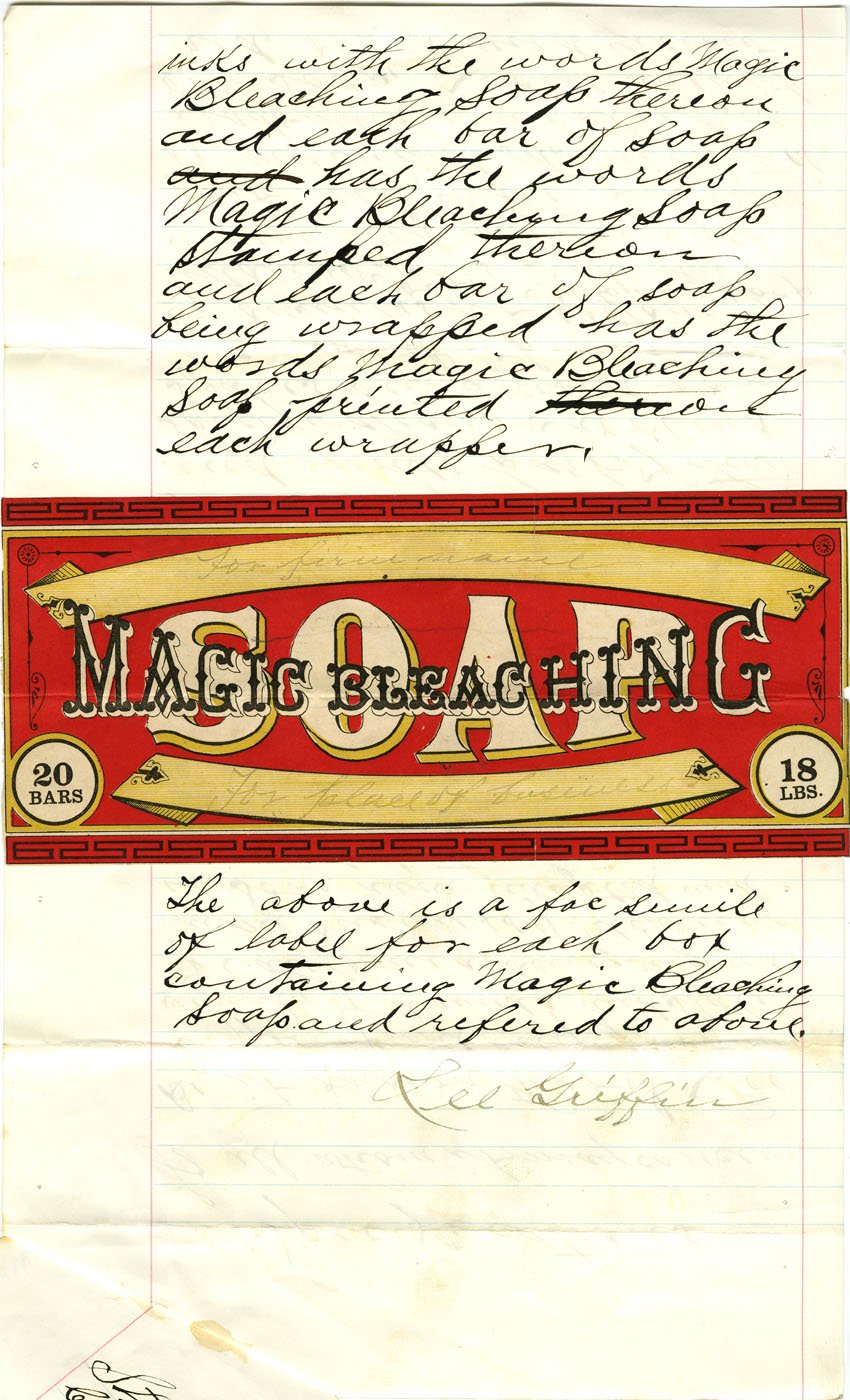 inks with the words Magic
Bleaching Soap thereon
and each bar of soap
and has the words
Magic Bleaching Soap
stamped thereon
and each bar of soap
being wrapped has the
words Magic Bleaching
Soap printed thereon
each wrapper.
for firm name
SOAP
MAGIC BLEACHING
20
BARS
18
LBS.
For place of business
The above is a fac simile
of label for each box
containing Magic Bleaching
Soap and refered to above.
Lee Griffin